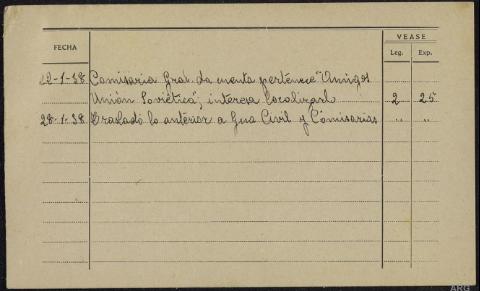 VEASE
FECHA Leg. Exp.
22-1-38 Comisaria Gral. da cuenta pertenece "Amigos
Unión Soviética", interesa localizarl 2 25
28-1-38 Traslado lo anterior a Gua Civil y Comisarias " "
ARG